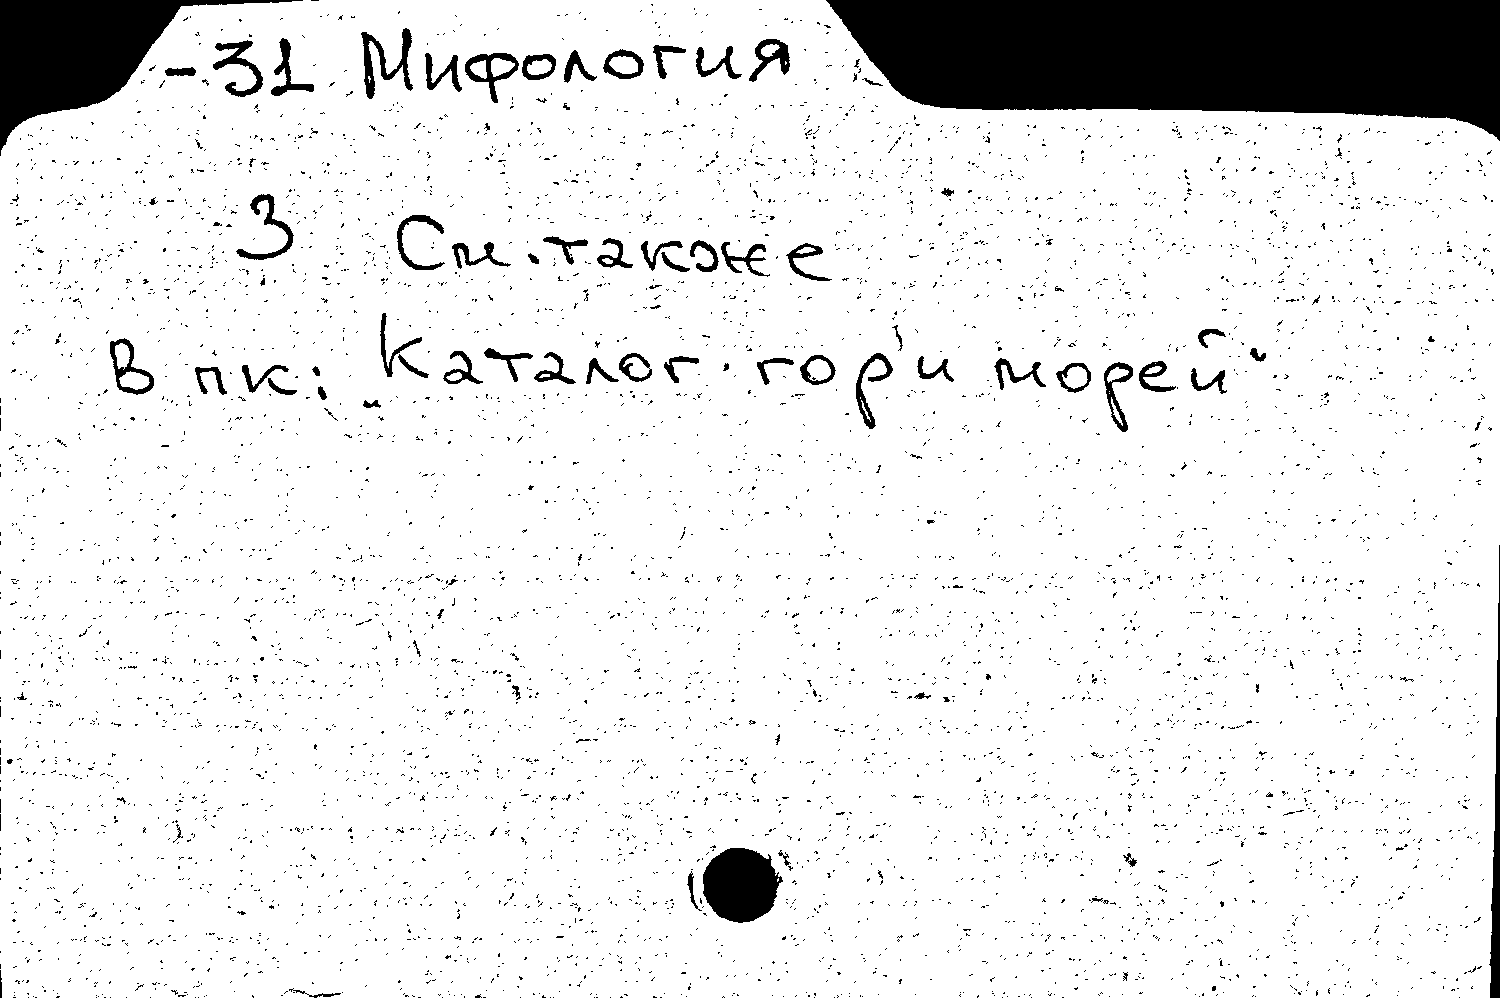 -31 Мифология
3 См. также
В пк: „Каталог гор и морей“